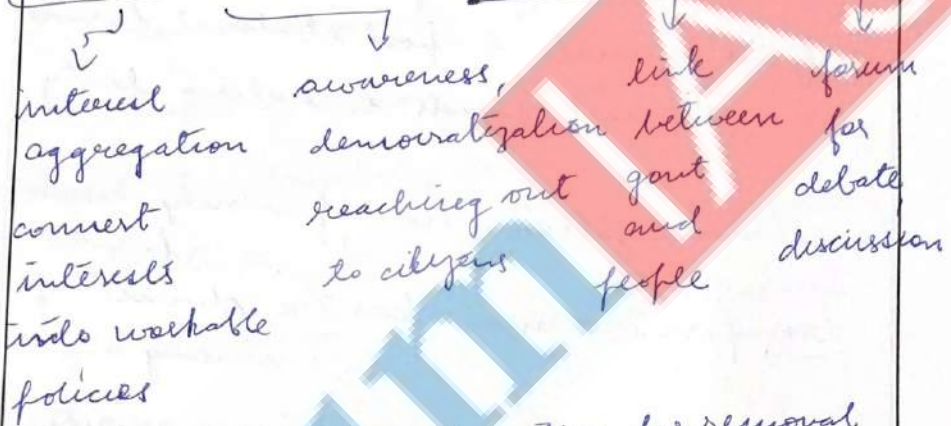 interest
aggregation
connect
interests
into workable
policies
awareness,
democratization
reaching out
to citizens
link
between
govt
and
people
forum
for
debate
discussion
removal